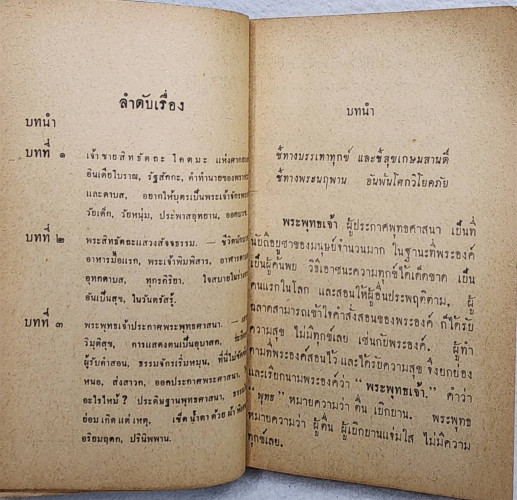 ลำดับเรื่อง
บทนำ
บทที่ ๑ เจ้าชายสิทธัตถะ โคตมะ แห่งศากย
อินเดียโบราณ, รัฐสักกะ, คำทำนายของพราหมณ์
และดาบส, อยากให้บุตรเป็นพระเจ้าจักร
วัยเด็ก, วัยหนุ่ม, ประพาสอุทยาน, ออกบวช
บทที่ ๒ พระสิทธัตถะแสวงสัจธรรม. — ชีวิตนัก
อาหารมื้อแรก, พระเจ้าพิมพิสาร, อาฬารดาบส
อุททดาบส, ทุกรกิริยา, ใจสบายในร่าง
อันเป็นสุข, ในวันตรัสรู้.
บทที่ ๓ พระพุทธเจ้าประกาศพระพุทธศาสนา. —
วิมุติสุข, การแสดงตนเป็นอุบาสก,
ผู้รับคำสอน, ธรรมจักรเริ่มหมุน, ที่นี่ไม่ขัด
หนอ, ส่งสาวก, ออกประกาศพระศาสนา,
อะไรไหม้ ? ประดิษฐานพุทธศาสนา,
ย่อมเกิดแต่เหตุ, เช็ดน้ำตาด้วยผ้า
อริยมฤดก, ปรินิพพาน.
บทนำ
ชี้ทางบรรเทาทุกข์ และชี้สุขเกษมสานติ์
ชี้ทางพระนฤพาน อันพ้นโศกวิโยคภัย
พระพุทธเจ้า ผู้ประกาศพุทธศาสนา เป็นที่
นับถือบูชาของมนุษย์จำนวนมาก ในฐานะที่พระองค์
เป็นผู้ค้นพบ วิธีเอาชนะความทุกข์ได้เด็ดขาด เป็น
คนแรกในโลก และสอนให้ผู้อื่นประพฤติตาม, ผู้
ฉลาดสามารถเข้าใจคำสั่งสอนของพระองค์ ก็ได้รับ
ความสุข ไม่มีทุกข์เลย เช่นกับพระองค์. ผู้ทำ
ตามที่พระองค์สอนไว้ และได้รับความสุข จึงยกย่อง
และเรียกนามพระองค์ว่า "พระพุทธเจ้า." คำว่า
"พุทธ" หมายความว่า ตื่น เบิกบาน. พระพุทธ
หมายความว่า ผู้ตื่น ผู้เบิกบานแจ่มใส ไม่มีความ
ทุกข์เลย.